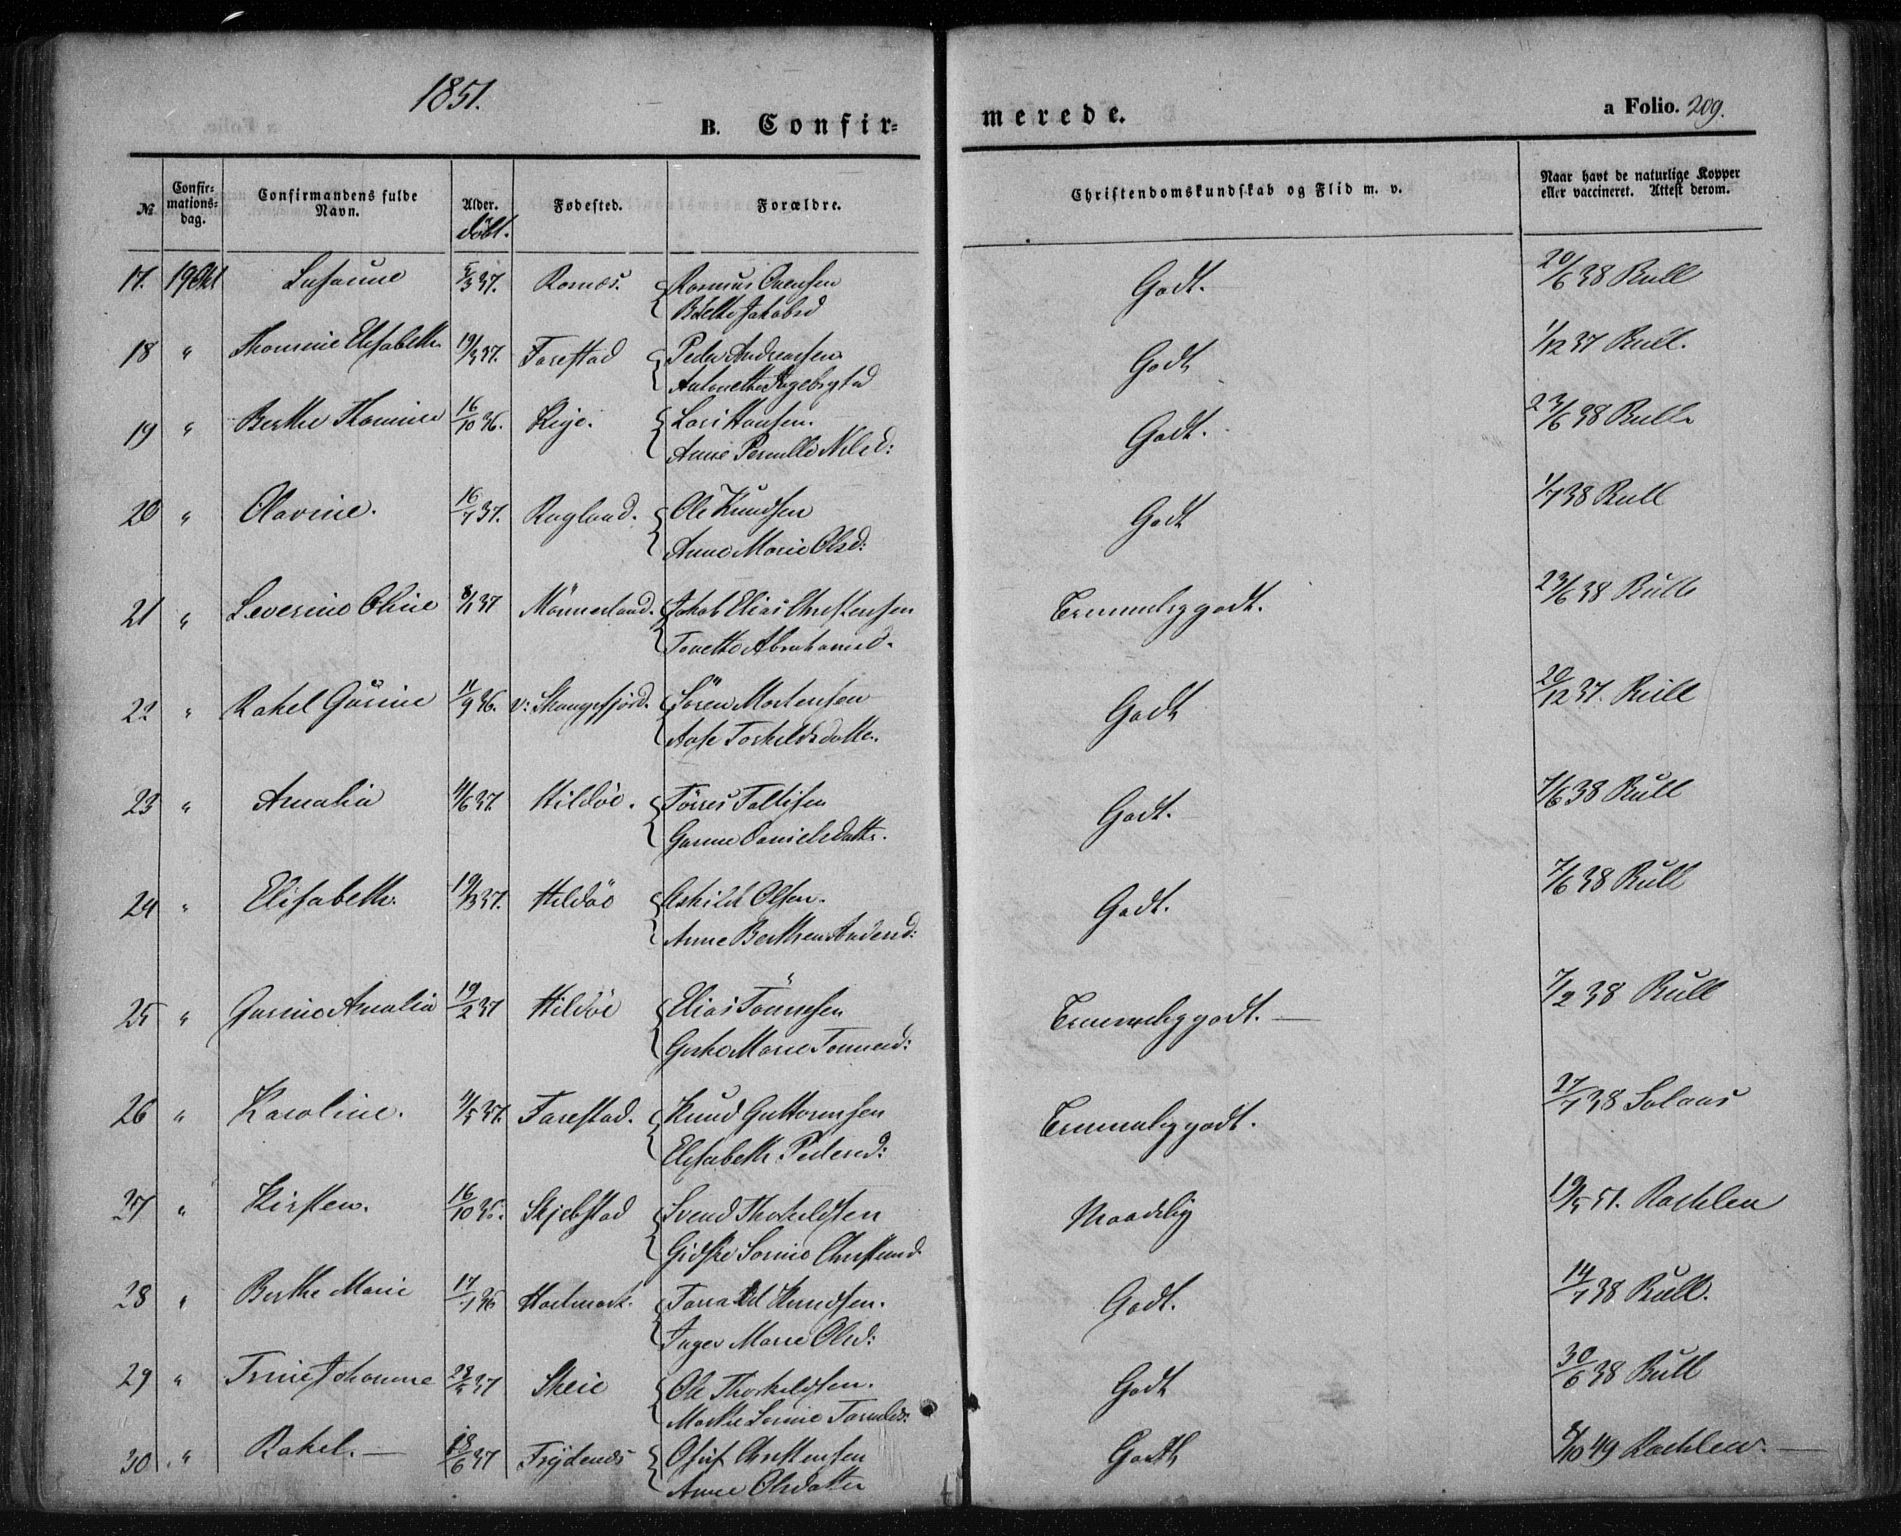 1851.
B. Confir-
merede.
a Folio. 209.
№
Confir-
mations-
dag.
Confirmandens fulde
Navn.
Alder.
döbt.
Fødested.
Forældre.
Christendomskundskab og Flid m. v.
Naar havt de naturlige Kopper
eller vaccineret. Attest derom.
17. 19 Okt Susanne 5/3 37. Rosnæs. Rasmus
Jakobsd
Godt. 20/6 38 Bull
18 " Thomine Elisabeth 19/3 37. Farestad Peder Andreassen
Antonette Ingebrgtsd
Godt 1/12 37 Bull.
19 " Berthe Thomine 16/10 36. Lars Hansen.
Anne Pernille Nilsd:
Godt. 23/6 38 Bull
20 " Olavine. 16/7 37. Rugland. Ole Knudsen
Anne Marie Olsd:
Godt 1/7 38 Bull
21 " Severine Oline 8/1 37 Mönnerland. Jakob Elias Christensen
Tonette Abrahamsd.
Temmelig godt. 23/6 38 Bull
22 " Rakel Gurine 11/9 36. v: Skougsfjord. Sören Mortensen
Aase Torkeldsdatter.
Godt 20/12 37. Bull
23 " Amalia 11/6 37. Hildöe. Törres Tallisen
Gunne Danielsdattr.
Godt. 7/6 38 Bull
24 " Elisabeth. 19/3 37. Hildöe Eskild Olsen.
Anne Berthea Andersd:
Godt. 7/6 38 Bull
25 " Gurine Amalia 19/2 37 Hildöe Elias Tönnesen
Marie Tönnesd:
Temmelig godt. — 7/2 38 Bull
26 " Karoline. 11/5 37. Farestad. Knud Guttormsen
Elisabeth Pedersd:
Temmelig godt. 27/7 38 Salans
27 " Kirsten. 16/10 35. Skjebstad Svend Thorkildsen
Gidske Serine Christensd.
Maadelig 19/5 51. Rachlew
28 " Berthe Marie 17/1 36 Hartmark. Tarald Knudsen.
Inger Marie Olsd:
Godt. 14/7 38 Bull.
29 " Trine Johanne 28/3 37 Skeie Ole Thorkeldsen.
Marthe Serine Taraldsd.
Godt 30/6 38 Bull
30 " Rakel. — 18/6 37 Frydenæs Osuf Christensen
Anne Olsdatter
Godt 5/10 49 Rachlew. —